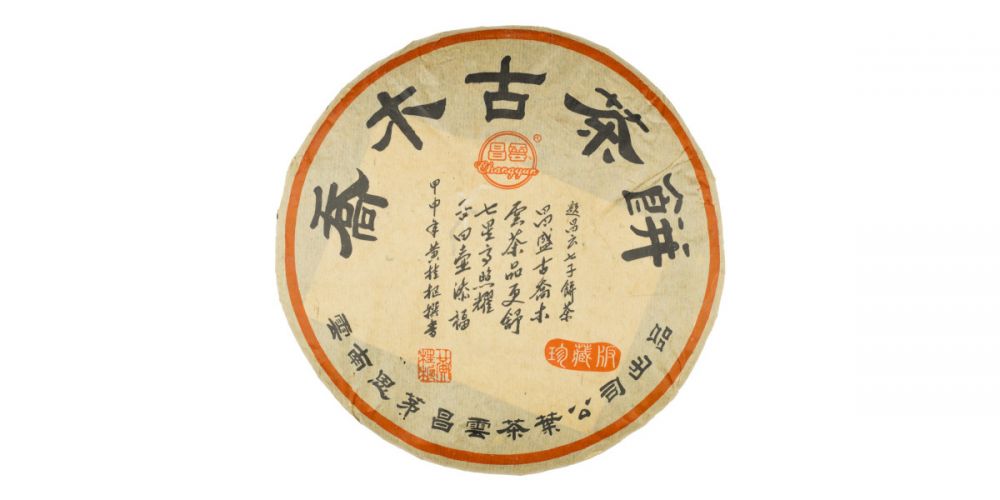 喬木古茶餅
昌雲
®
Changyun
題昌云七子餅茶
昌盛古喬木
雲茶品更舒
七星高照耀
壺添福
甲申年黄桂枢撰書
珍藏版
雲南思茅昌雲茶葉公司出品